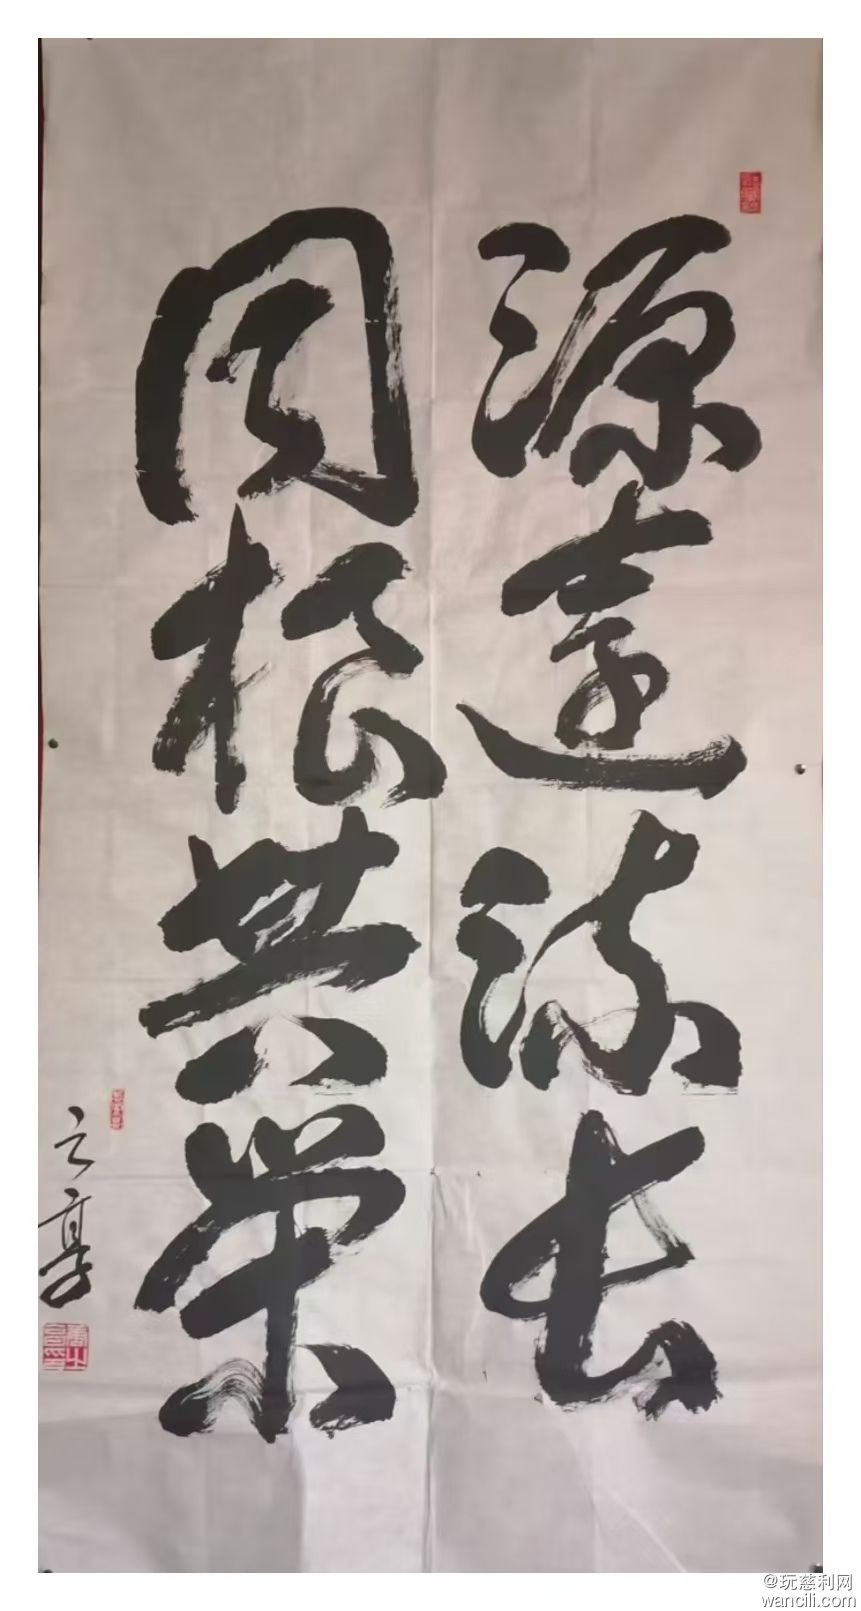 源远流长
同根共荣
之享
@玩慈利网
wancili.com